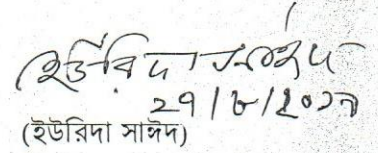 ইউরিদা সাঈদ
২৭/৮/২০১৯
(ইউরিদা সাঈদ)